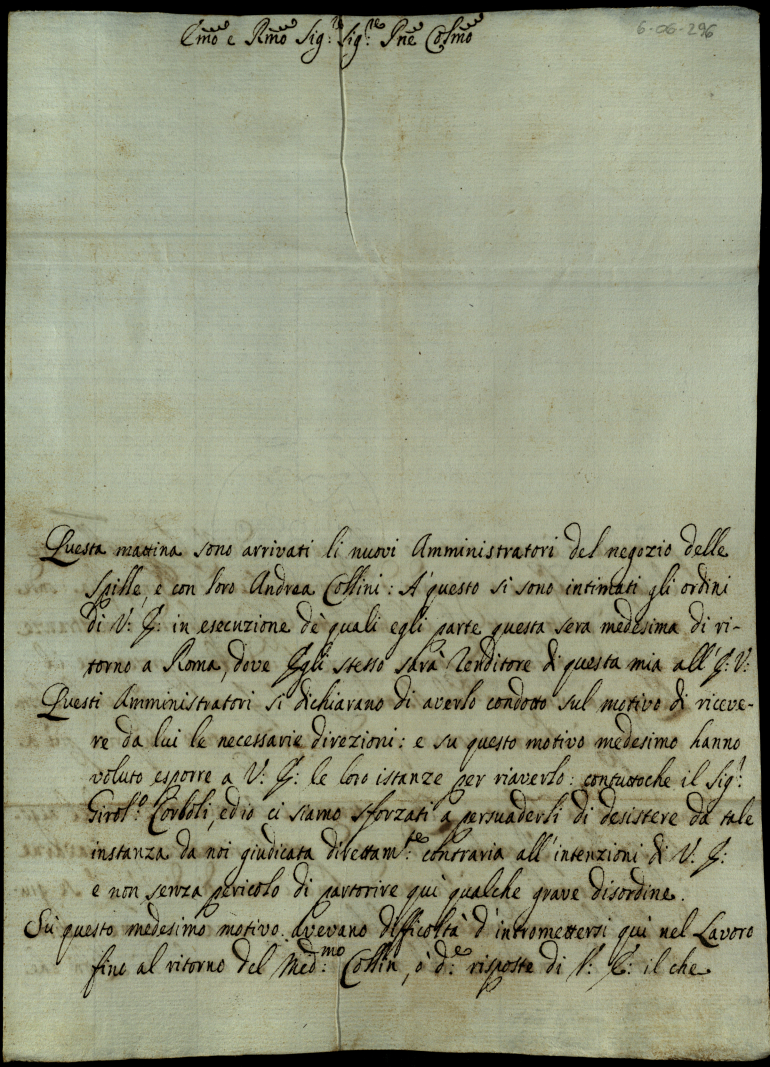 Emo e Rmo Sig.r Sig.re Pne Colmo
6-06-296
Questa mattina sono arrivati li nuovi Amministratori del negozio delle
Spille, e con loro Andrea Collini: A' questo si sono intimati gli ordini
di V: E: in esecuzione de' quali egli parte questa sera medesima di ri-
torno a Roma, dove Egli stesso sarà Renditore di questa mia all'E: V:
Questi Amministratori si dichiarano di averlo condotto sul motivo di riceve-
re da lui le necessarie direzioni: e su questo motivo medesimo hanno
voluto esporre a V: E: le loro istanze per riaverlo: contuttoche il Sig.r
Girol.o Corboli, ed io ci siamo sforzati a persuaderli di desistere da tale
instanza da noi giudicata direttam.te contraria all'intenzioni di V: E:
e non senza pericolo di partorire quì qualche grave disordine.
Sù questo medesimo motivo avevano difficoltà d'intromettersi quì nel Lavoro
fino al ritorno del Med.mo Collin, ò d.e risposte di V: E: il che